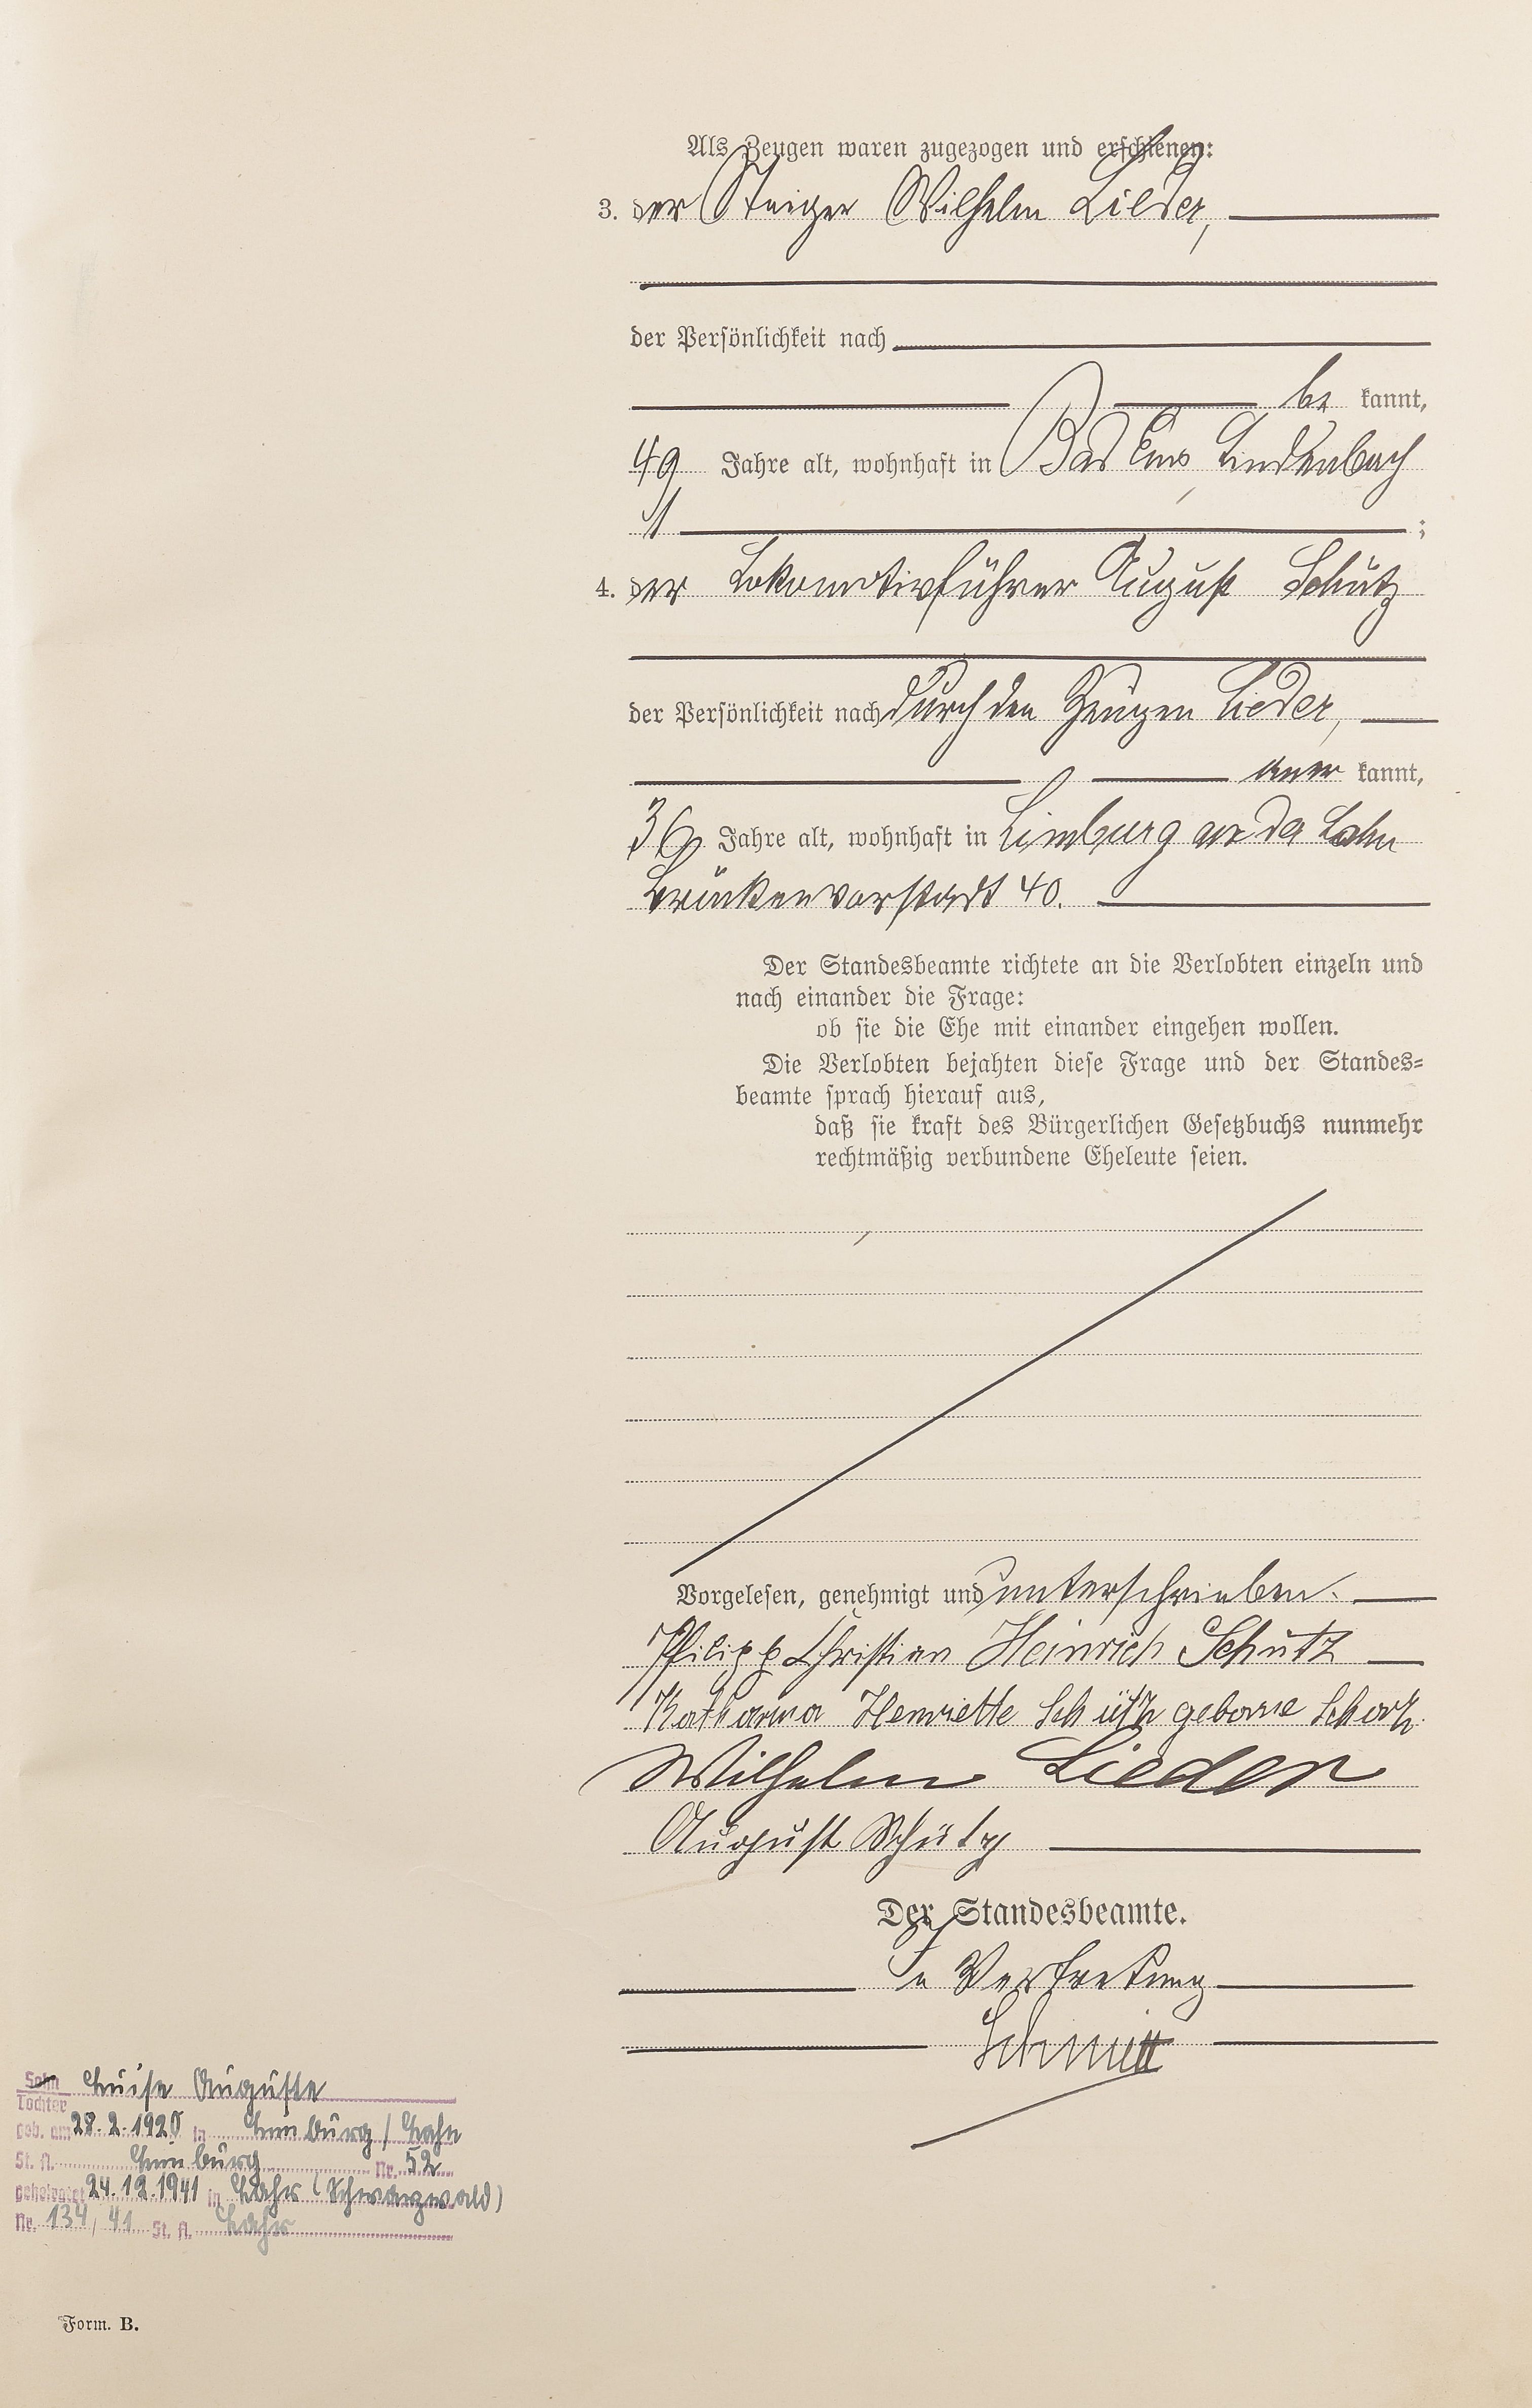 Als Zeugen waren zugezogen und erschienen:
3. der Steiger Wilhelm Lieder,
der Persönlichkeit nach
be kannt,
49 Jahre alt, wohnhaft in Bad Ems, Lindenbach
1 ;
4. der Lokomotivführer August Schütz
der Persönlichkeit nach durch den Zeugen Lieder,
aner kannt,
36 Jahre alt, wohnhaft in Limburg an der Lahn
Brückenvorstadt 40.
Der Standesbeamte richtete an die Verlobten einzeln und
nach einander die Frage:
ob sie die Ehe mit einander eingehen wollen.
Die Verlobten bejahten diese Frage und der Standes-
beamte sprach hierauf aus,
daß sie kraft des Bürgerlichen Gesetzbuchs nunmehr
rechtmäßig verbundene Eheleute seien.
Vorgelesen, genehmigt und unterschrieben.
Philipp Christian Heinrich Schütz
Katharina Henriette Schütz geborne
Wilhelm Lieder
August Schütz
Der Standesbeamte.
In Vertretung
Schmitt
Sohn Luise Auguste
Tochter
geb. am 28.2.1920 in Limburg / Lahn
St. A. Limburg Nr. 52
geheiratet 24.12.1941 in Lahr (Schwarzwald)
Nr. 134/41 St. A. Lahr
Form. B.